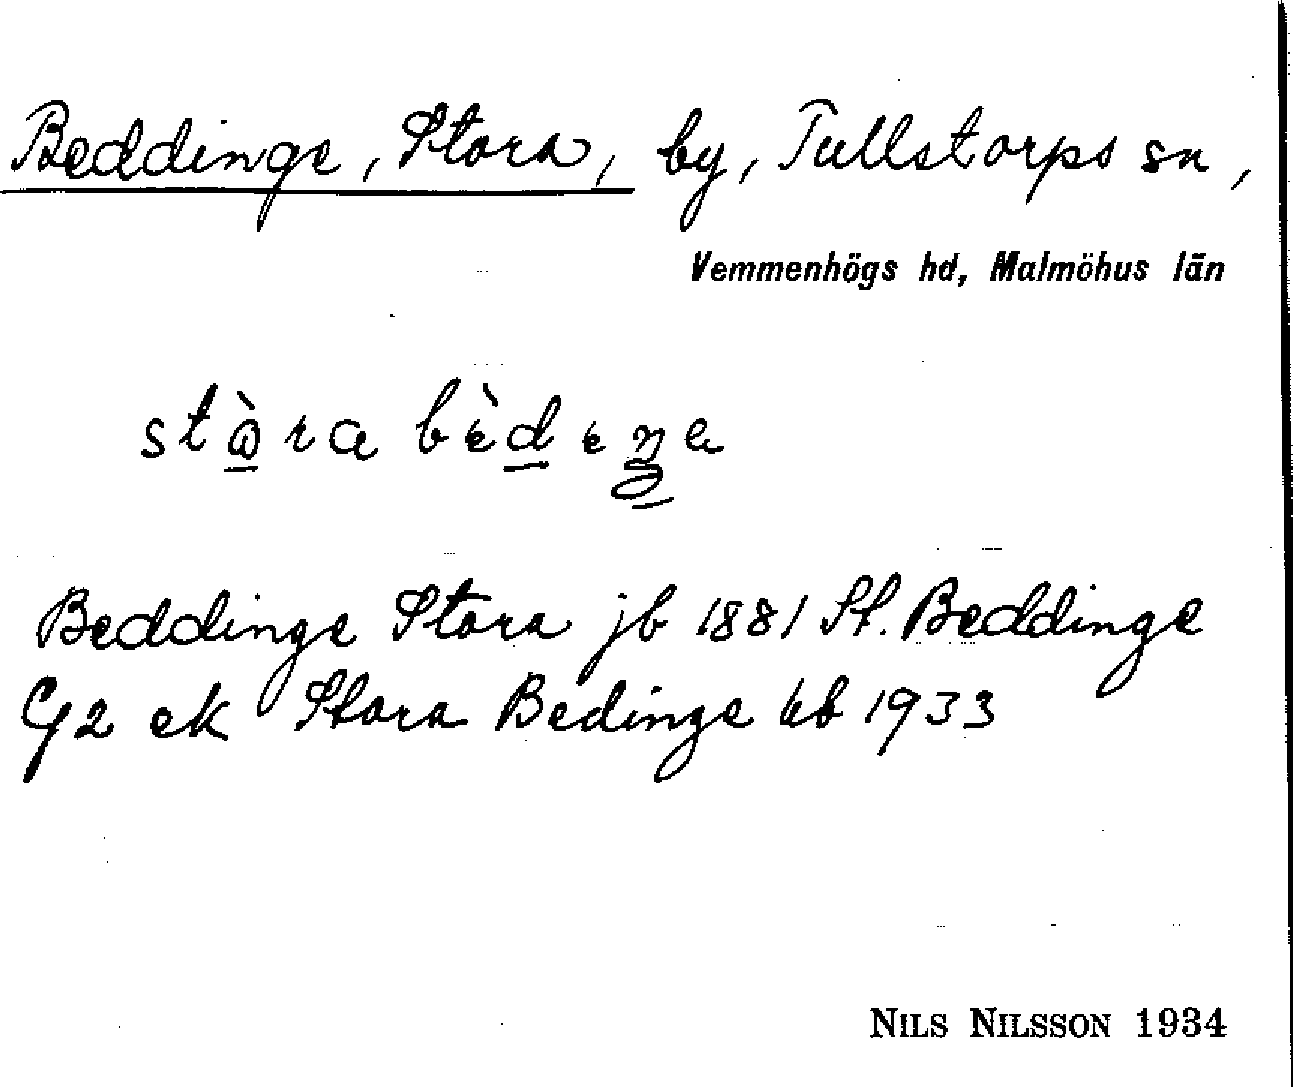 Beddinge, Stora, by, Tullstorps sn,
Vemmenhögs hd, Malmöhus län
Beddinge Stora jb 1881 St. Beddinge
G2 ek Stora Bedinge tb 1933
NILS NILSSON 1934